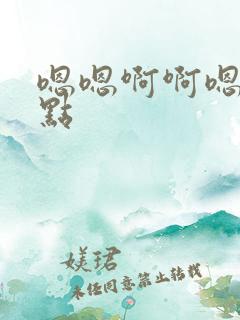 嗯嗯啊啊嗯
點
媄珺
未经同意禁止转载